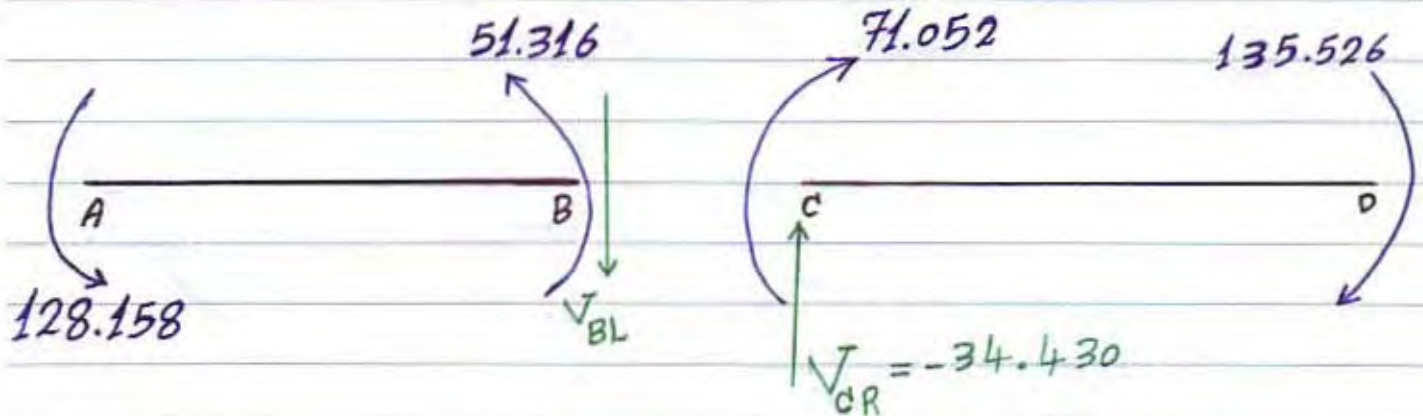 51.316 71.052 135.526
A B C D
128.158
V_BL
V_CR = -34.430